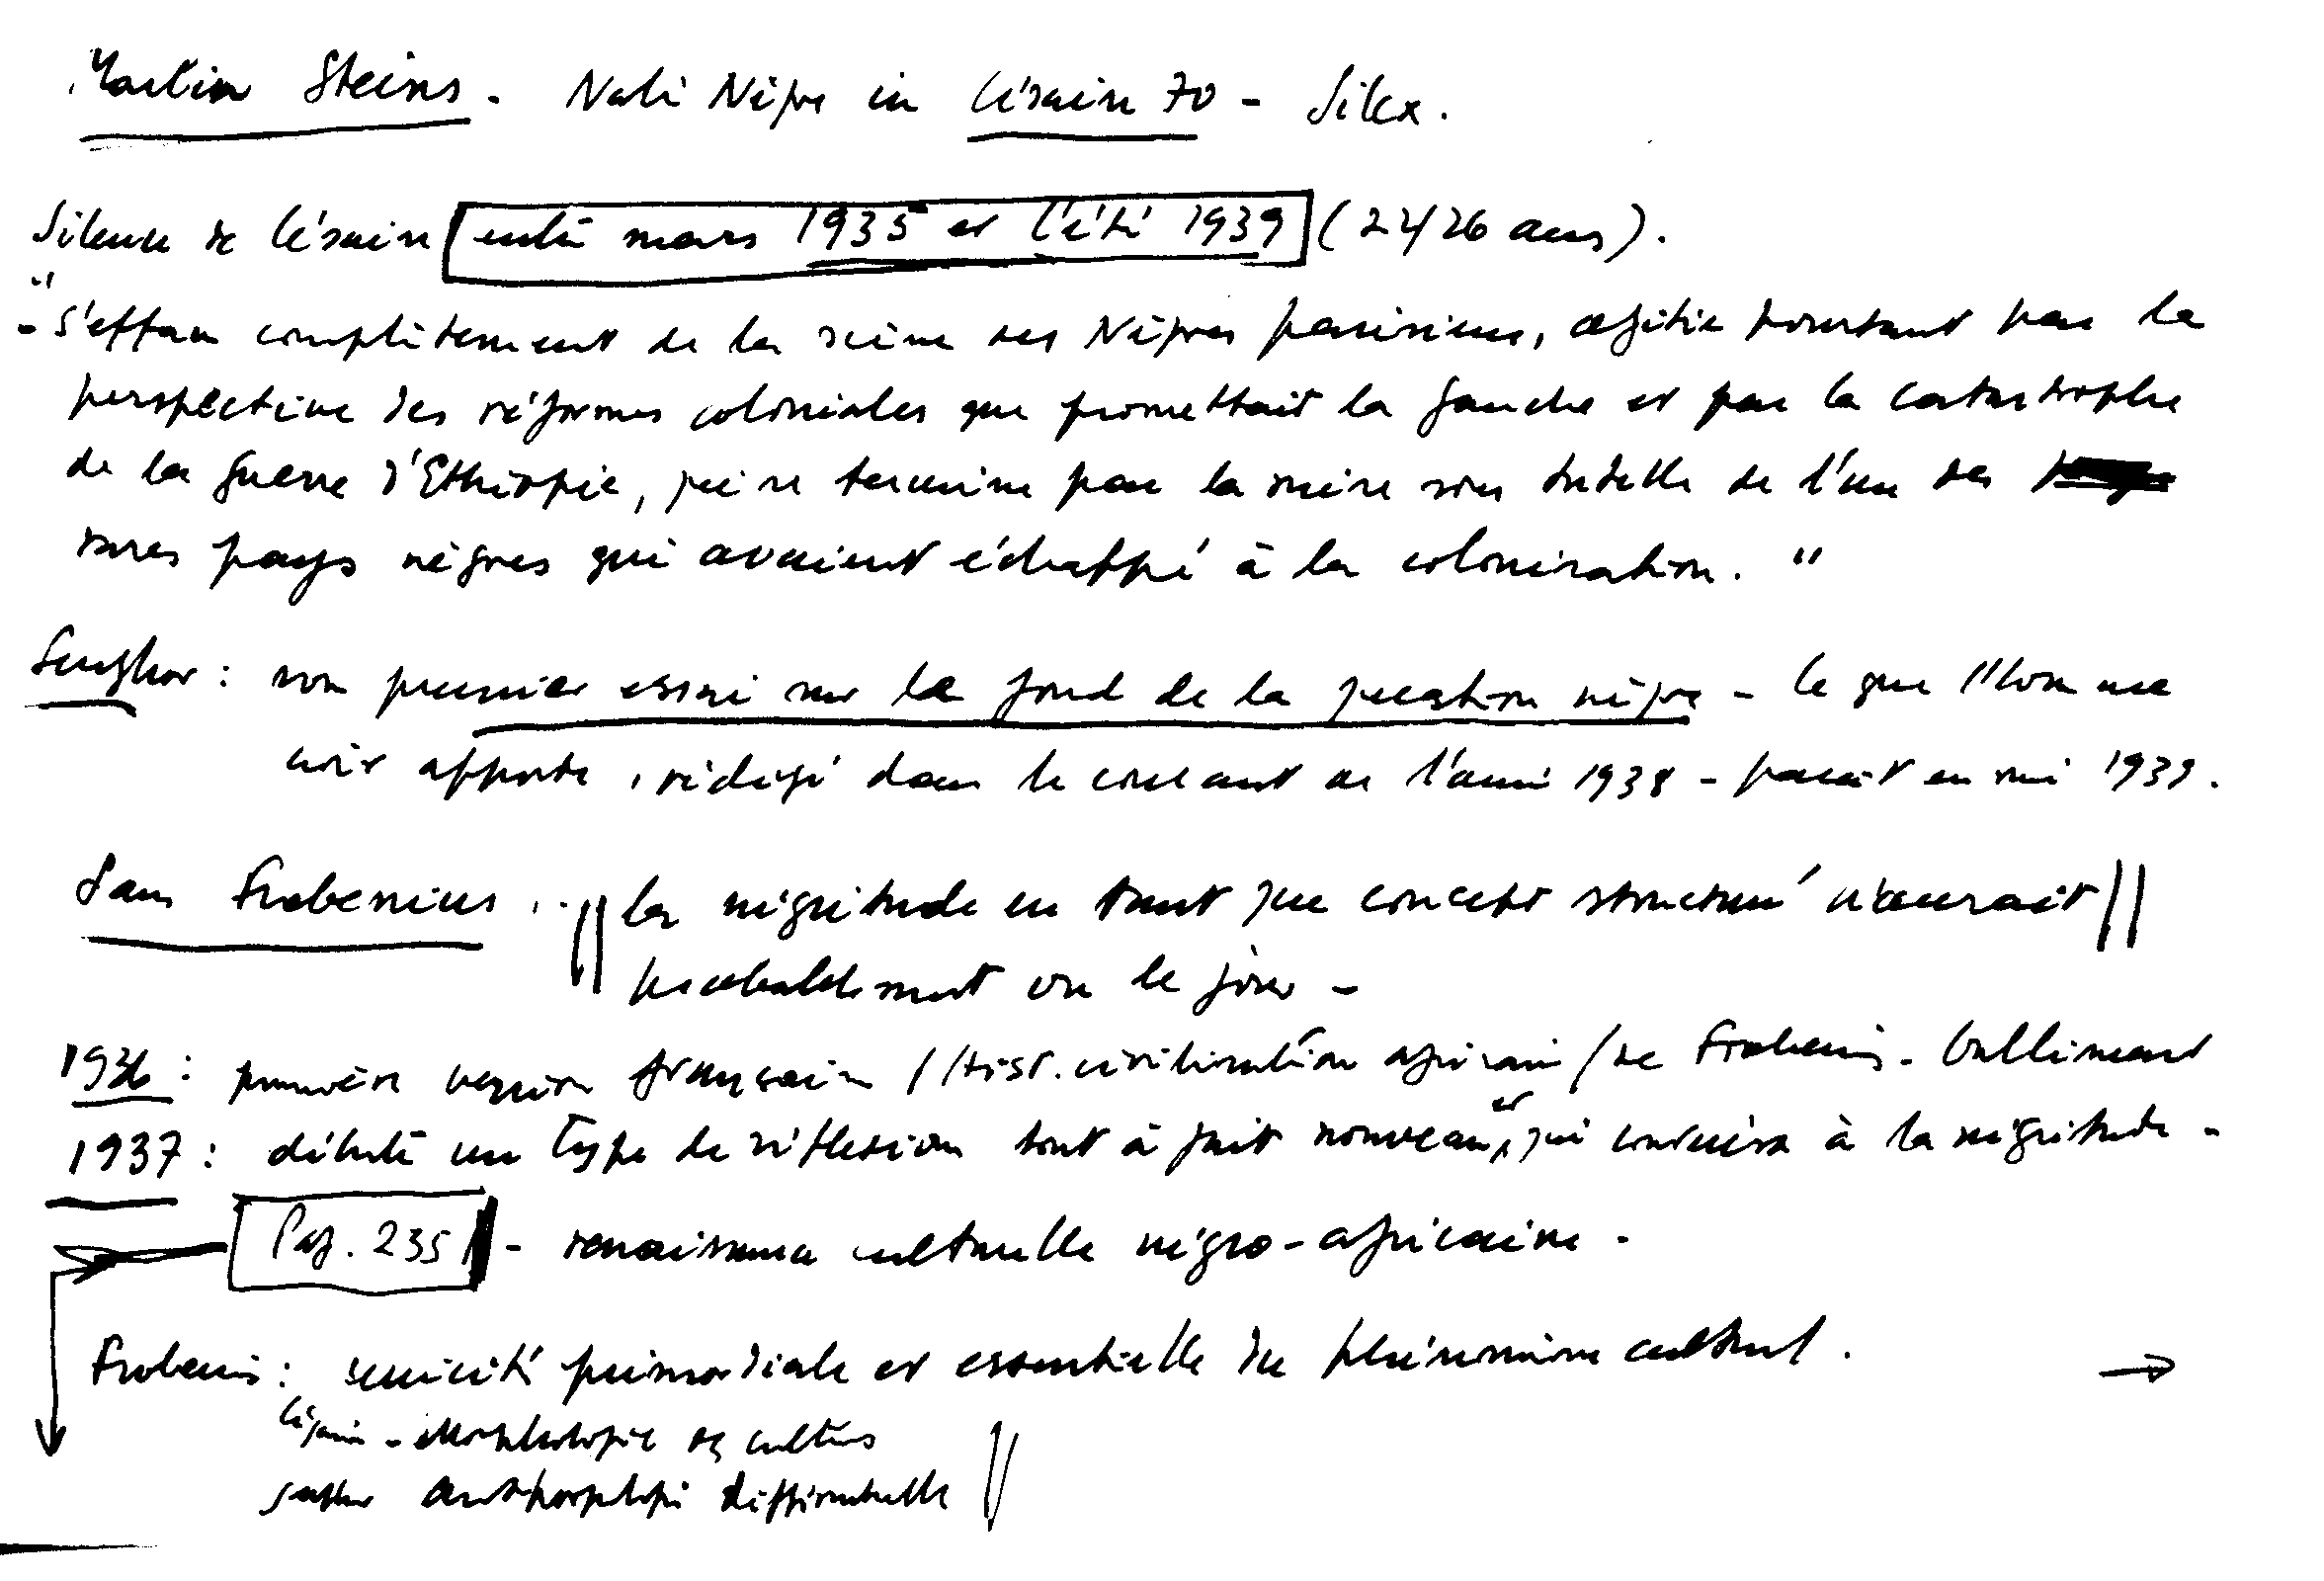 Martin Steins - Nabi Nègre in Césaire 70 - Silex.
Silence de Césaire entre mars 1935 et l'été 1939 (22/26 ans).
"
- s'efface complètement de la scène des Nègres parisiens, agitée pourtant par la
perspective des réformes coloniales que promettait la gauche et par la catastrophe
de la guerre d'Ethiopie, qui se termine par la mise sous tutelle de l'un des
rares pays nègres qui avaient échappé à la colonisation. "
Senghor : son premier essai sur le fond de la question nègre - Ce que l'homme
noir apporte, rédigé dans le courant de l'année 1938 - paraît en mai 1939.
Sans Frobenius .. || la négritude en tant que concept structuré n'aurait ||
probablement vu le jour -
1936 : première version française / Hist. civilisation africaine / de Frobenius - Gallimard
1937 : débute un type de réflexion tout à fait nouveau, et qui conduira à la négritude -
Pag. 235 - renaissance culturelle négro-africaine -
Frobenius : unicité primordiale et essentielle du phénomène culturel . →
Césaire - Morphologie des cultures
Senghor Anthropologie différentielle ||